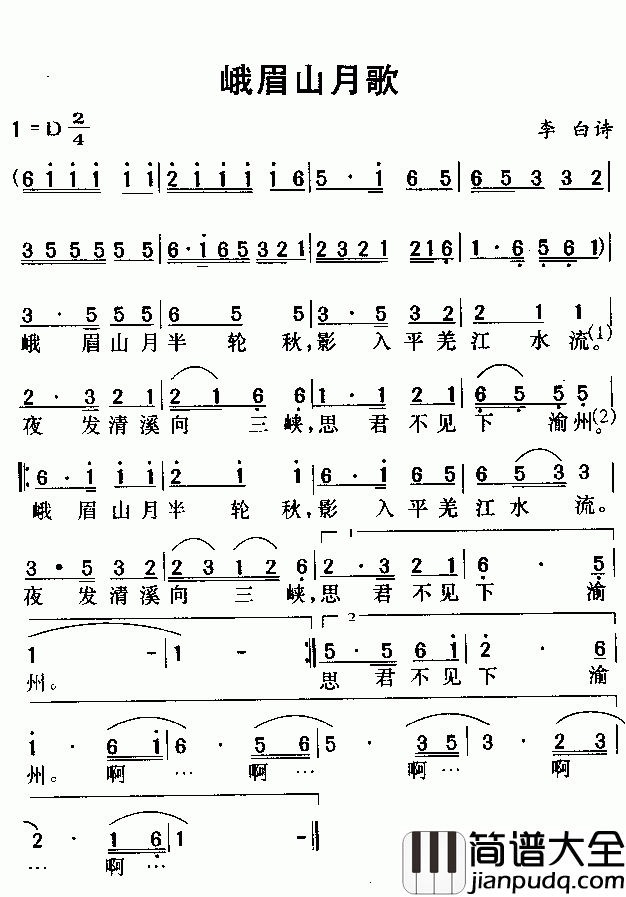 峨眉山月歌
1=D 2/4
李 白 诗
(6 1 1 1 1 1 | 2 1 1 1 1 6 | 5 · 1 6 5 | 6 5 3 3 2 |
3 5 5 5 5 5 | 6 · 1 6 5 3 2 1 | 2 3 2 1 2 1 6 | 1 · 6 5 6 1) |
3 · 5 5 5 | 6 5 5 | 3 · 5 3 2 | 2 1 1 |
峨 眉山月半 轮 秋,影 入平羌江 水 流。(1)
2 · 3 2 1 | 2 1 6 6 | 1 · 1 2 1 | 6 5 5 5 |
夜 发清溪向 三峡,思君 不见下 渝州。(2)
6 · 1 1 1 | 2 1 1 | 6 · 1 6 5 | 6 5 3 3 |
峨 眉山月半 轮 秋,影 入平羌江水 流。
1
3 · 5 3 2 | 2 3 1 2 6 | 2 · 3 2 1 | 6 · 5 |
夜 发清溪向 三 峡,思君 不见下 渝
2
1 - | 1 - :| 5 · 5 6 1 | 2 · 6 |
州。 思 君不见下 渝
1 · 6 1 | 1 · 5 6 | 1 · 3 5 | 3 · 2 3 |
州。 啊 … 啊 … 啊 … 啊
2 · 1 6 | 1 - |
… 啊 …
简谱大全
jianpudq.com